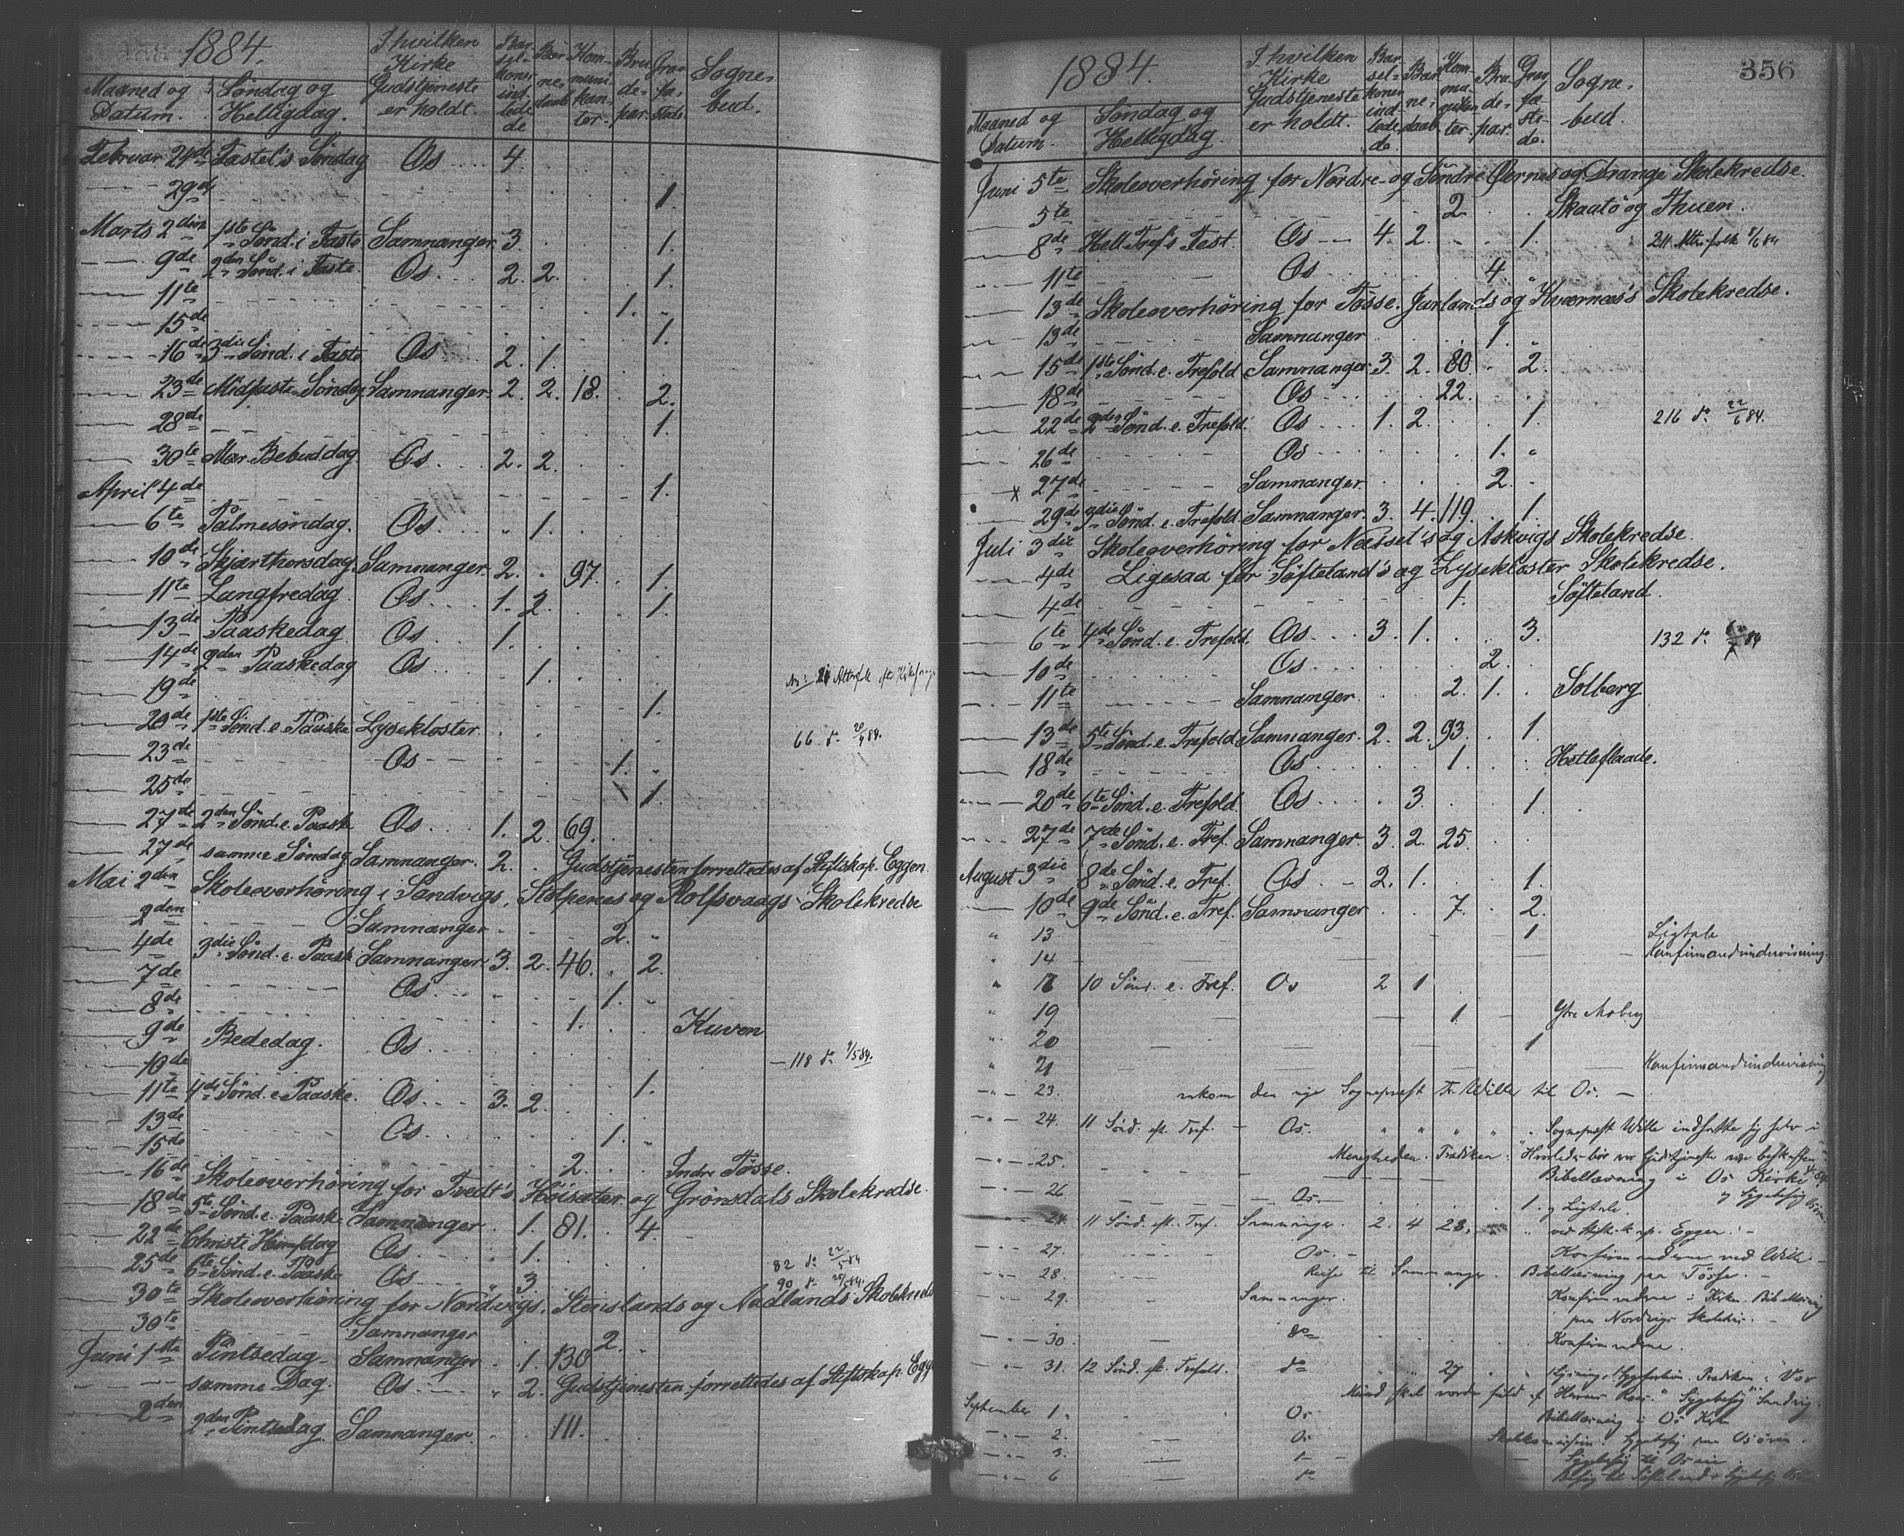 1884.
Maaned og Datum. Søndag og Helligdag. I hvilken Kirke Gudstjeneste er holdt. Barselkoner indledede Børnedaab Kommunikanter. Brudepar. Gravfæstede Sognebud.
Februar 24de Fastel's Søndag Os 4.
29de 1.
Marts 2den 1ste Sønd. i Faste Samnanger 3. 1.
9de 2den Sønd. i Faste Os 2. 2. 1.
11te 1.
15de 1.
16de 3die Sønd. i Faste Os 2. 1.
23de Midfaste Søndag Samnanger 2. 2. 18. 2.
28de 1.
30te Mar. Bebud.dag Os 2. 2.
April 4de 1.
6te Palmesøndag. Os 1.
10de Skjærthorsdag. Samnanger 2. 97. 1.
11te Langfredag Os 1. 2. 1.
13de Paaskedag Os 1.
14de 2den Paaskedag Os 1.
19de 1.
20de 1ste Sønd. e. Paaske Lysekloster 66 do 20/4 84.
23de Os 1.
25de 1.
27de 2den Sønd. e. Paaske Os 1. 2. 69.
27de samme Søndag Samnanger. 2. Gudstjenesten forrettedes af Stiftskap. Eggen
Mai 2den Skoleoverhøring i Sandvigs, Stolpenes og Rolfsvaags Skolekredse
2den Samnanger 2.
4de 3die Sønd. e. Paask Samnanger 3. 2. 46. 2.
7de Os 1.
8de 1. Kuven
9de Bededag. Os
10de 1. 118 do 9/5 84.
11te 4de Sønd. e. Paaske. Os 3. 2.
13de Os 1.
15de 2. Indre Tøsse.
16de Skoleoverhøring for Tvedt's, Høisæter og Grønsdals Skolekredse.
18de 5te Sønd. e. Paaske Samnanger 1. 81. 4.
22de Christi Himf.dag Os 1. 82 do 22/5 84
25de 6te Sønd. e. Paaske Os 3 90 do 25/5 84.
30te Skoleoverhøring for Nordvigs, Stenslands og Aadlands Skolekreds
30te Samnanger 2.
Juni 1ste Pintsedag Samnanger 1. 130
samme Dag. Os 2. Gudstjenesten forrettedes af Stiftskap. Egge
2den 2den Pintsedag. Samnanger. 111.
1884.
356
Maaned og Datum. Søndag og Helligdag I hvilken Kirke Gudstjeneste er holdt. Barselkoner indledede Barnedaab Kommunikanter. Brudepar. Gravfæstede. Sognebud.
Juni 5te Skoleoverhøring for Nordre og Søndre Øernes og Drange Skolekredse.
5te 2. Skaatø og Thuen.
8de Hell. Tref's Fest. Os 4. 2. 1. 211 8/6 84
11te Os 4.
13de Skoleoverhøring for Tøsse, Jarlands og Kværnæs's Skolekredse.
13de Samnanger 1.
15de 1ste Sønd. e. Trefold Samnanger 3. 2. 80. 2.
18de Os 22.
22de 2den Sønd. e. Trefold. Os 1. 2. 1. 216 do 22/6 84.
26de Os 1.
x 27de Samnanger 2.
29de 3die Sønd. e. Trefold. Samnanger. 3. 4. 119. 1.
Juli 3die Skoleoverhøring for Næsset's og Askvigs Skolekredse.
4de Ligesaa for Søfteland's og Lysekloster Skolekredse.
4de 1. Søfteland.
6te 4de Sønd. e. Trefold. Os 3. 1. 3. 132 do
10de Os 2.
11te Samnanger. 2. 1. Solberg
13de 5te Sønd. e. Trefold Samnanger. 2. 2. 93. 1.
18de Os 1. Hetleflaade.
20de 6te Sønd. e. Trefold. Os 3. 1.
27de 7de Sønd. e. Tref. Samnanger. 3. 2. 25.
August 3die 8de Sønd. e. Tref. Os 2. 1. 1.
10de 9de Sønd. e. Tref. Samnanger 7. 2.
" 13 1 Ligtale
" 14 Konfirmandundervisning.
" 17 10 Sønd. e. Tref. Os 2 1
" 19 1. Ytre Moberg
" 20 1
" 21 Konfirmandundervisning
23. ankom den nye Sognepræst Fr. Wille til Os.
24. 11 Sønd. eft. Tref. Os. Sognepræst Wille indsatte sig selv i
25. Menigheden. Prædiken: "Hvorledes bør vor Gudstjeneste være beskaffen"
Bibellæsning i Os Kirke
26 Os.
1. og Ligtale.
24. 11 Sønd. eft. Tref. Samnanger. 2. 4 28. ved Stiftskap. Eggen.
27. Os. Konfirmanderne ved Wille
28. Reise til Samnanger. Bibellæsning paa Tøsse.
29. Samnanger. Konfirmanderne i Kirken. Bibellæsning
paa Nordvigs Skolehus.
30 do Konfirmanderne.
31. 12 Sønd. eft. Trefold. do 27
September 1. Os Bibellæsning i Os Kirke
2. Os
3.
6 do